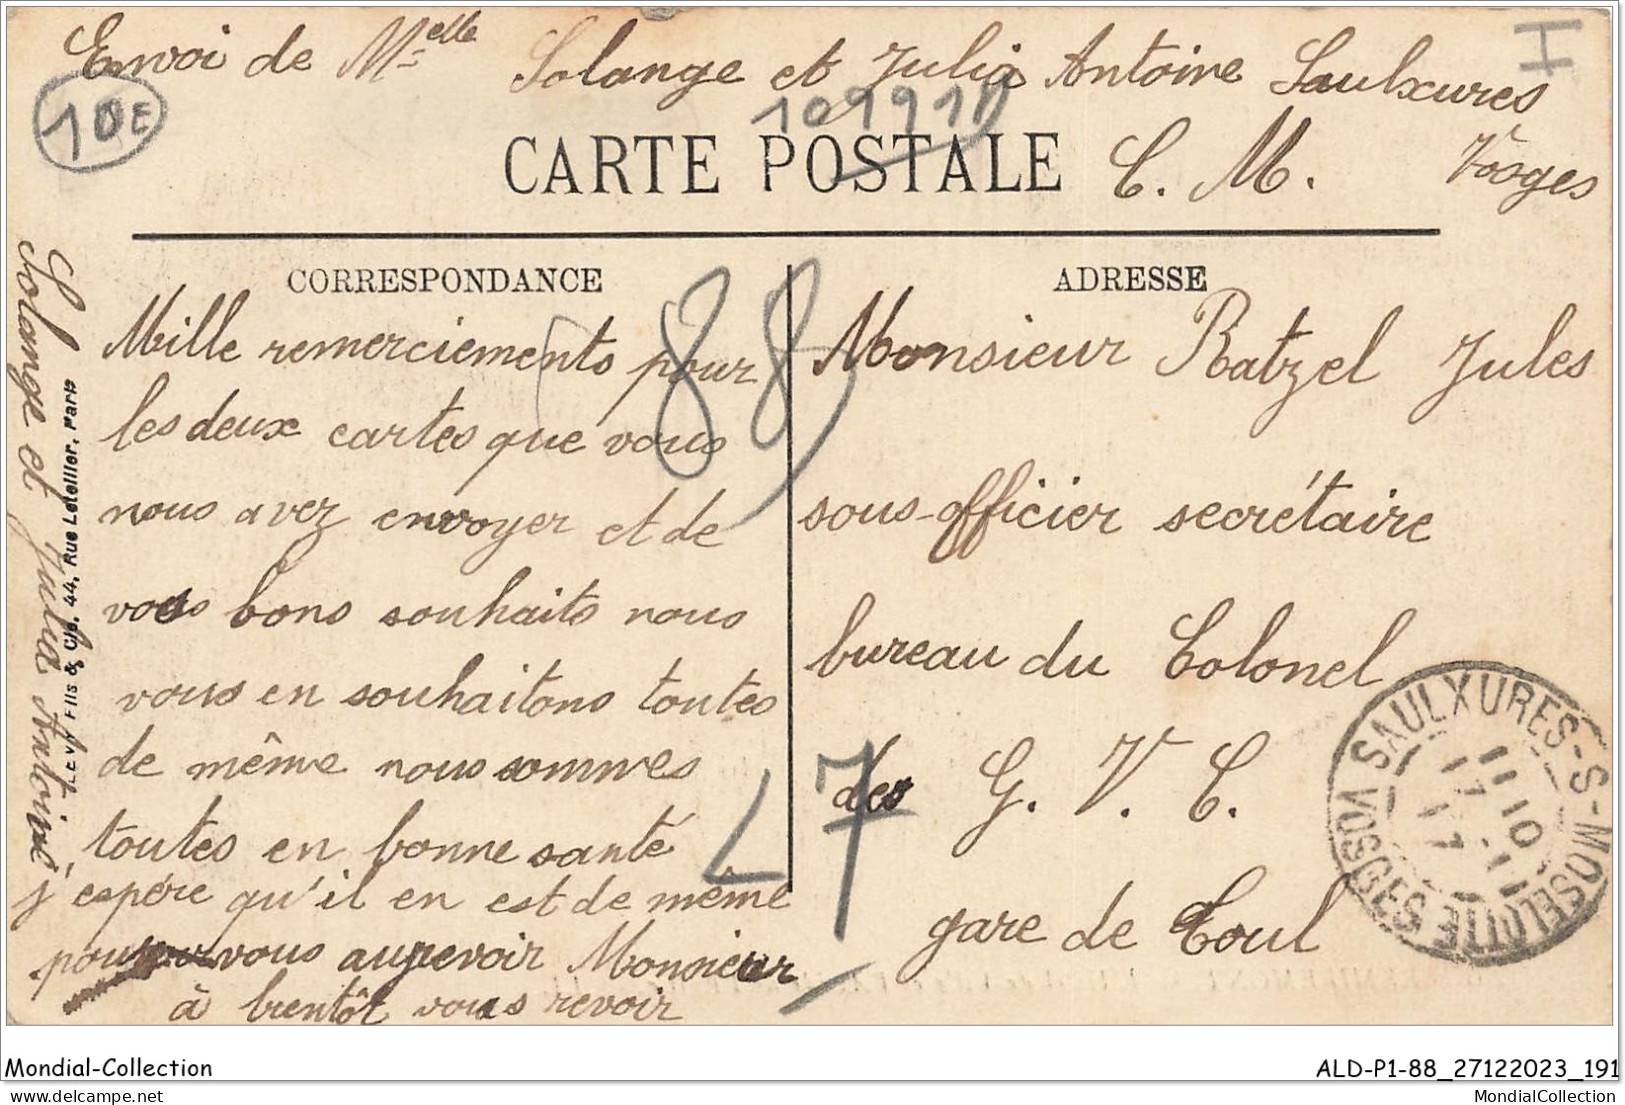 Envoi de Melle Solange et Julia Antoine Saulxures
I
10E
109911
CARTE POSTALE
C. M. Vosges
CORRESPONDANCE
ADRESSE
88
Mille remerciements pour
les deux cartes que vous
nous avez envoyer et de
vous bons souhaits nous
vous en souhaitons toutes
de même nous sommes
toutes en bonne santé
j'espére qu'il en est de même
pour vous aurevoir Monsieur
à bientôt vous revoir
Solange et Julia Antoine
LEVY Fils & Cie, 44, Rue Letellier, Paris
Monsieur Ratzel Jules
sous-officier secrétaire
bureau du Colonel
des G. V. C.
gare de Toul
7
SAULXURES-S-MOSELOTTE
VOSGES
11 10
17 - 1
17
Mondial-Collection
ALD-P1-88_27122023_191
Mondial-Collection.com
MondialCollection